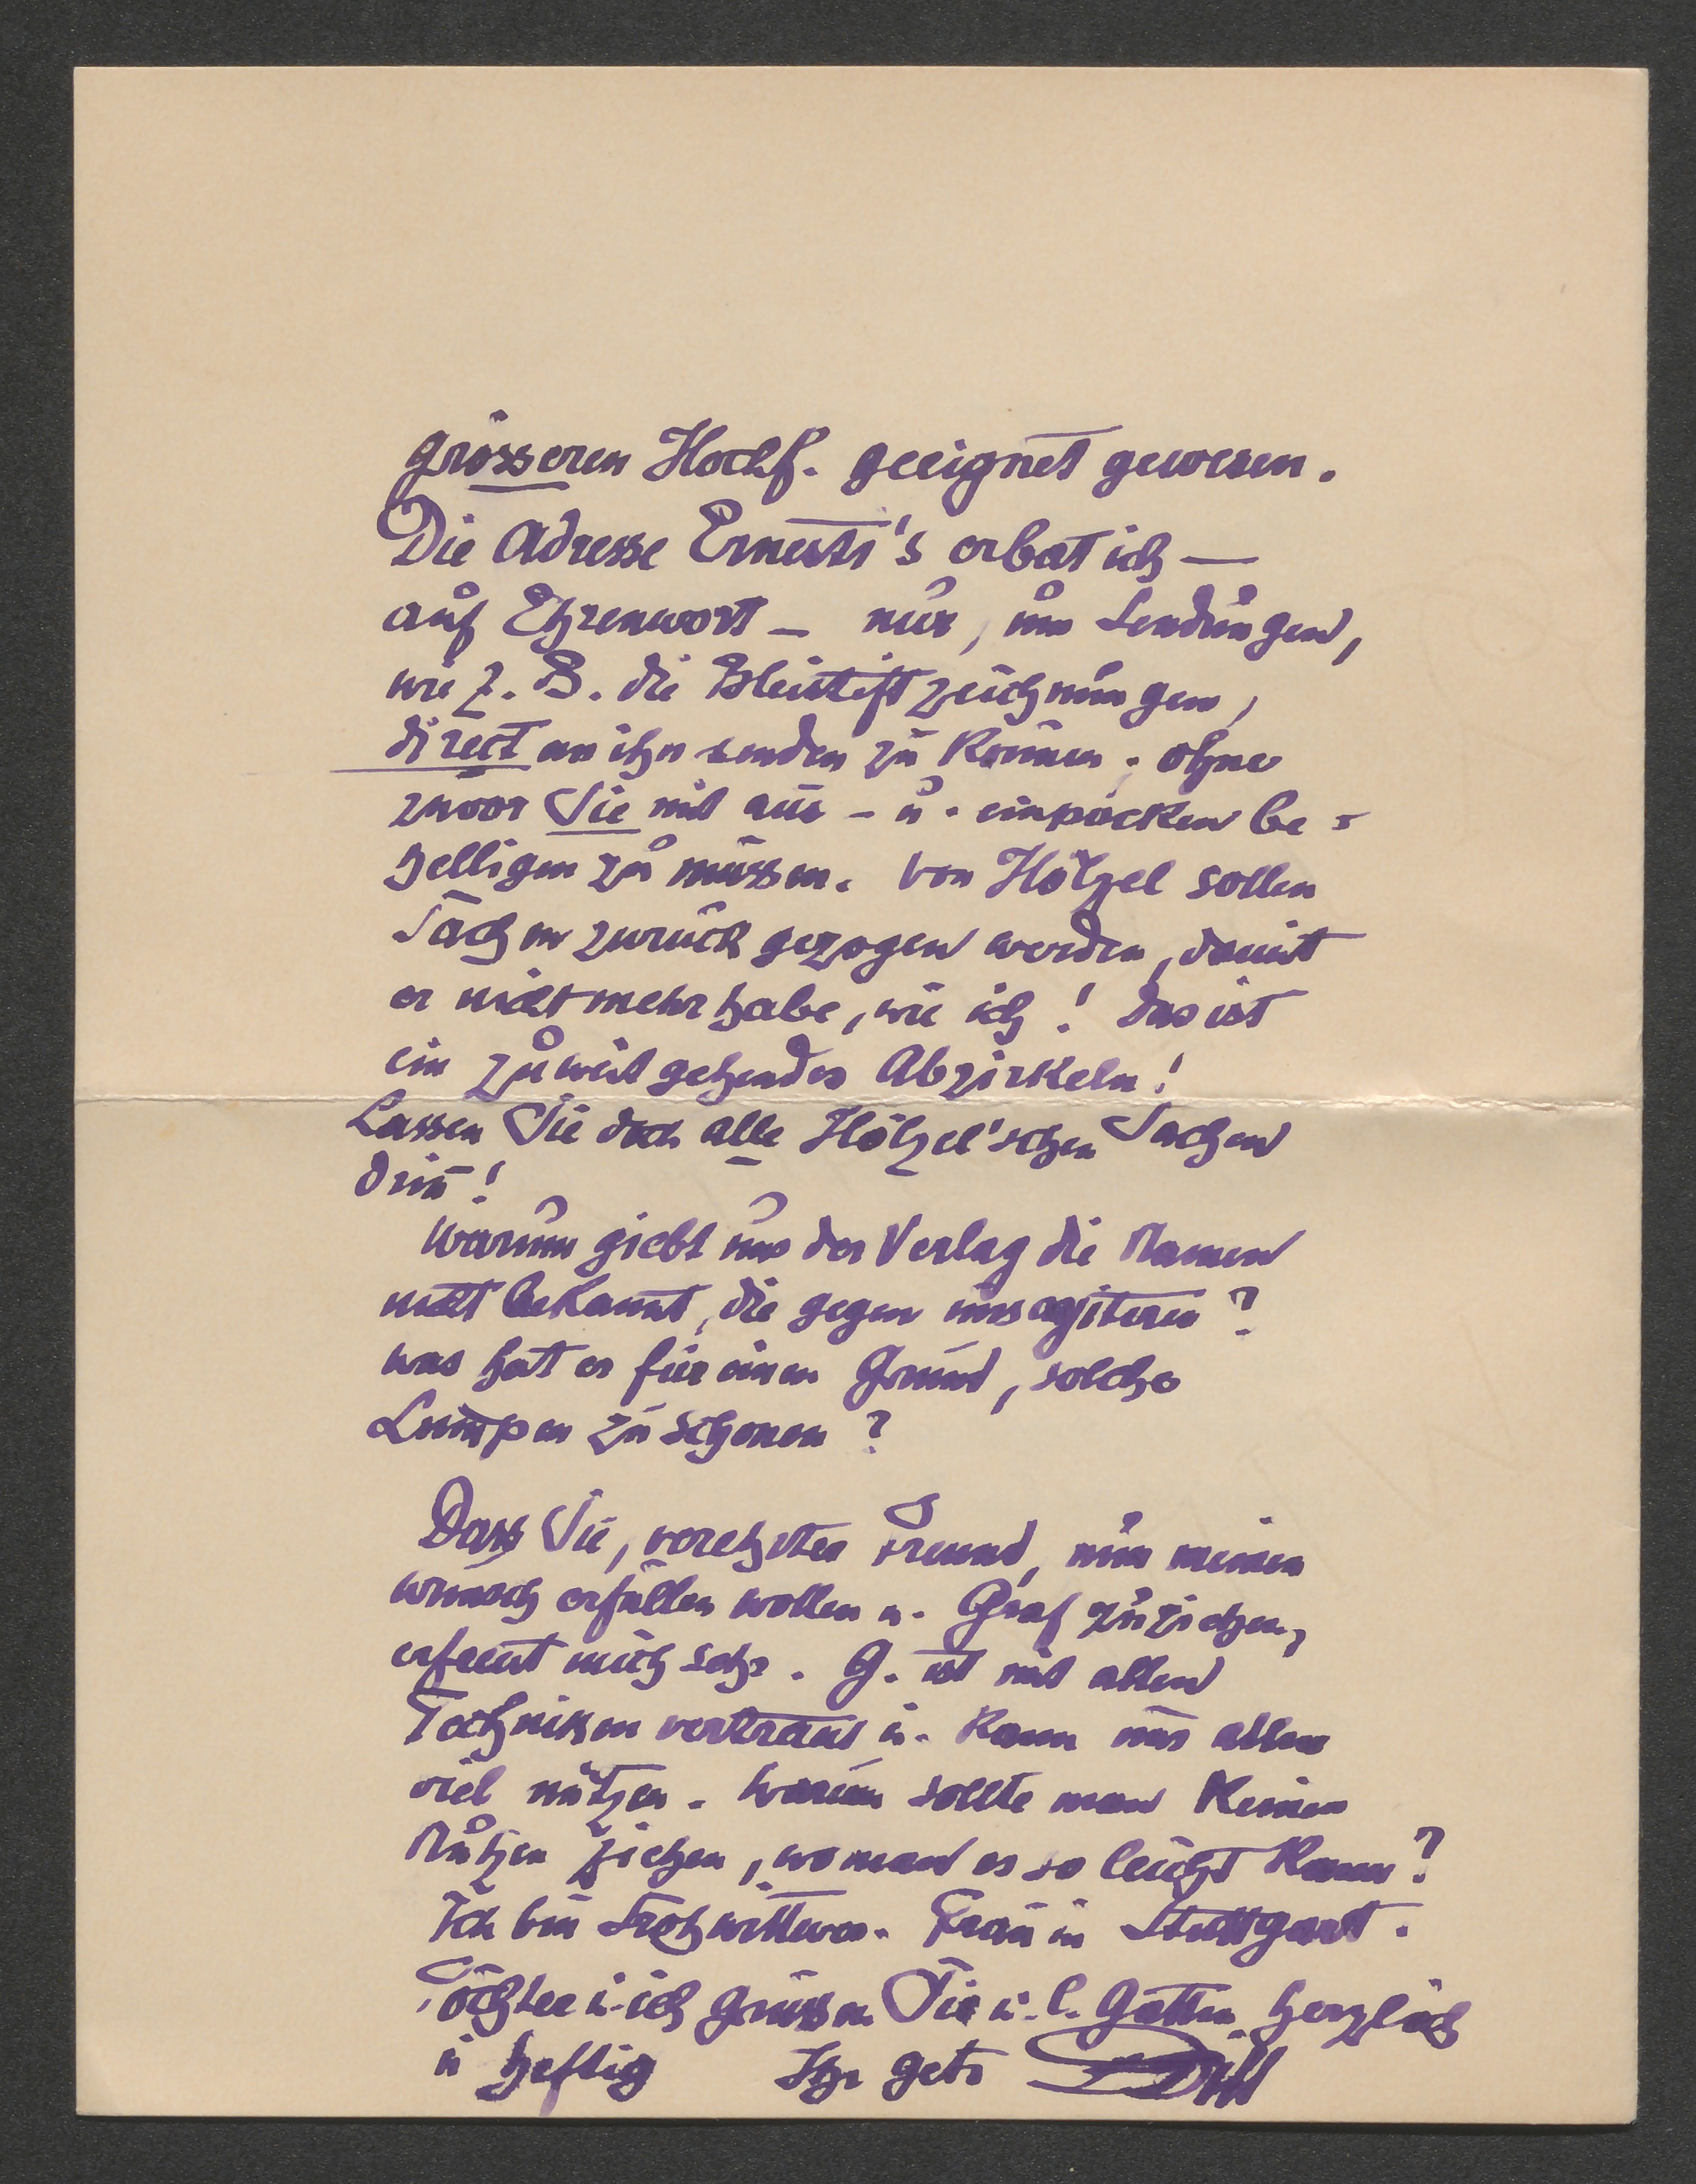 grösseren Hochf. geeignet gewesen.
Die Adresse Ernesti's erbat ich —
auf Ehrenwort — nur, um Sendungen,
wie z. B. die Bleistiftzeichnungen,
direct an ihn senden zu können, ohne
zuvor Sie mit aus- u. einpacken be-
helligen zu müssen. Von Hölzel sollen
Sachen zurückgezogen werden, damit
er nicht mehr habe, wie ich! Das ist
ein zuweit gehendes Abzirkeln!
Lassen Sie doch alle Hölzel'schen Sachen
drin!
Warum giebt uns der Verlag die Namen
nicht bekannt, die gegen uns agitiren?
was hat er für einen Grund, solche
Lumpen zu schonen?
Dass Sie, verehrter Freund, nun meinen
Wunsch erfüllen wollen u. Graf zuziehen,
erfreut mich sehr. G. ist mit allen
Techniken vertraut u. kann uns allen
viel nützen. Warum sollte man keinen
Nutzen ziehen, wo man es so leicht kann?
Ich bin Strohwittwer. Frau in Stuttgart.
Töchter u. ich grüssen Sie u. l. Gattin herzlich
u heftig Ihr getr Dill